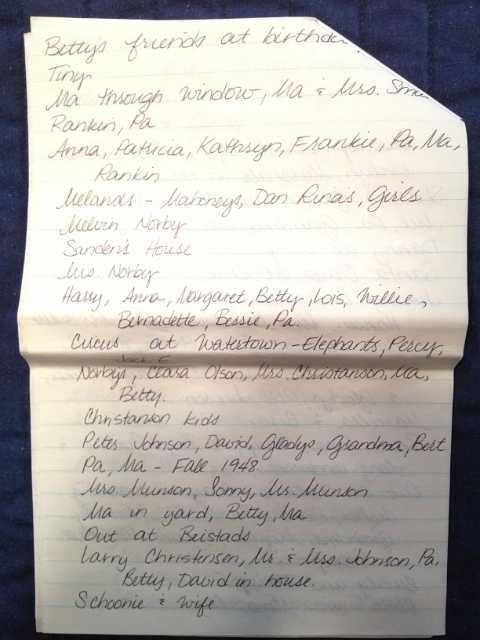 Betty's friends at birthda
Tiny
Ma through window, Ma & Mrs. Sm
Rankin, Pa
Anna, Patricia, Kathryn, Frankie, Pa, Ma,
Rankin
Melands - Mahoneys, Dan Rinas, Girls
Melvin Norby
Sanden's House
Mrs. Norby
Harry, Anna, Margaret, Betty, Lois, Willie,
Bernadette, Bessie, Pa.
Circus at Watertown - Elephants, Percy,
Norbys, Clara Olson, Mrs. Christianson, Ma,
Betty.
Christianson kids
Peter Johnson, David, Gladys, Grandma, Bert
Pa, Ma - Fall 1948
Mrs. Munson, Sonny, Mr. Munson
Ma in yard, Betty, Ma
Out at Beistads
Larry Christensen, Mr. & Mrs. Johnson, Pa.
Betty, David in house.
Schoonie & wife